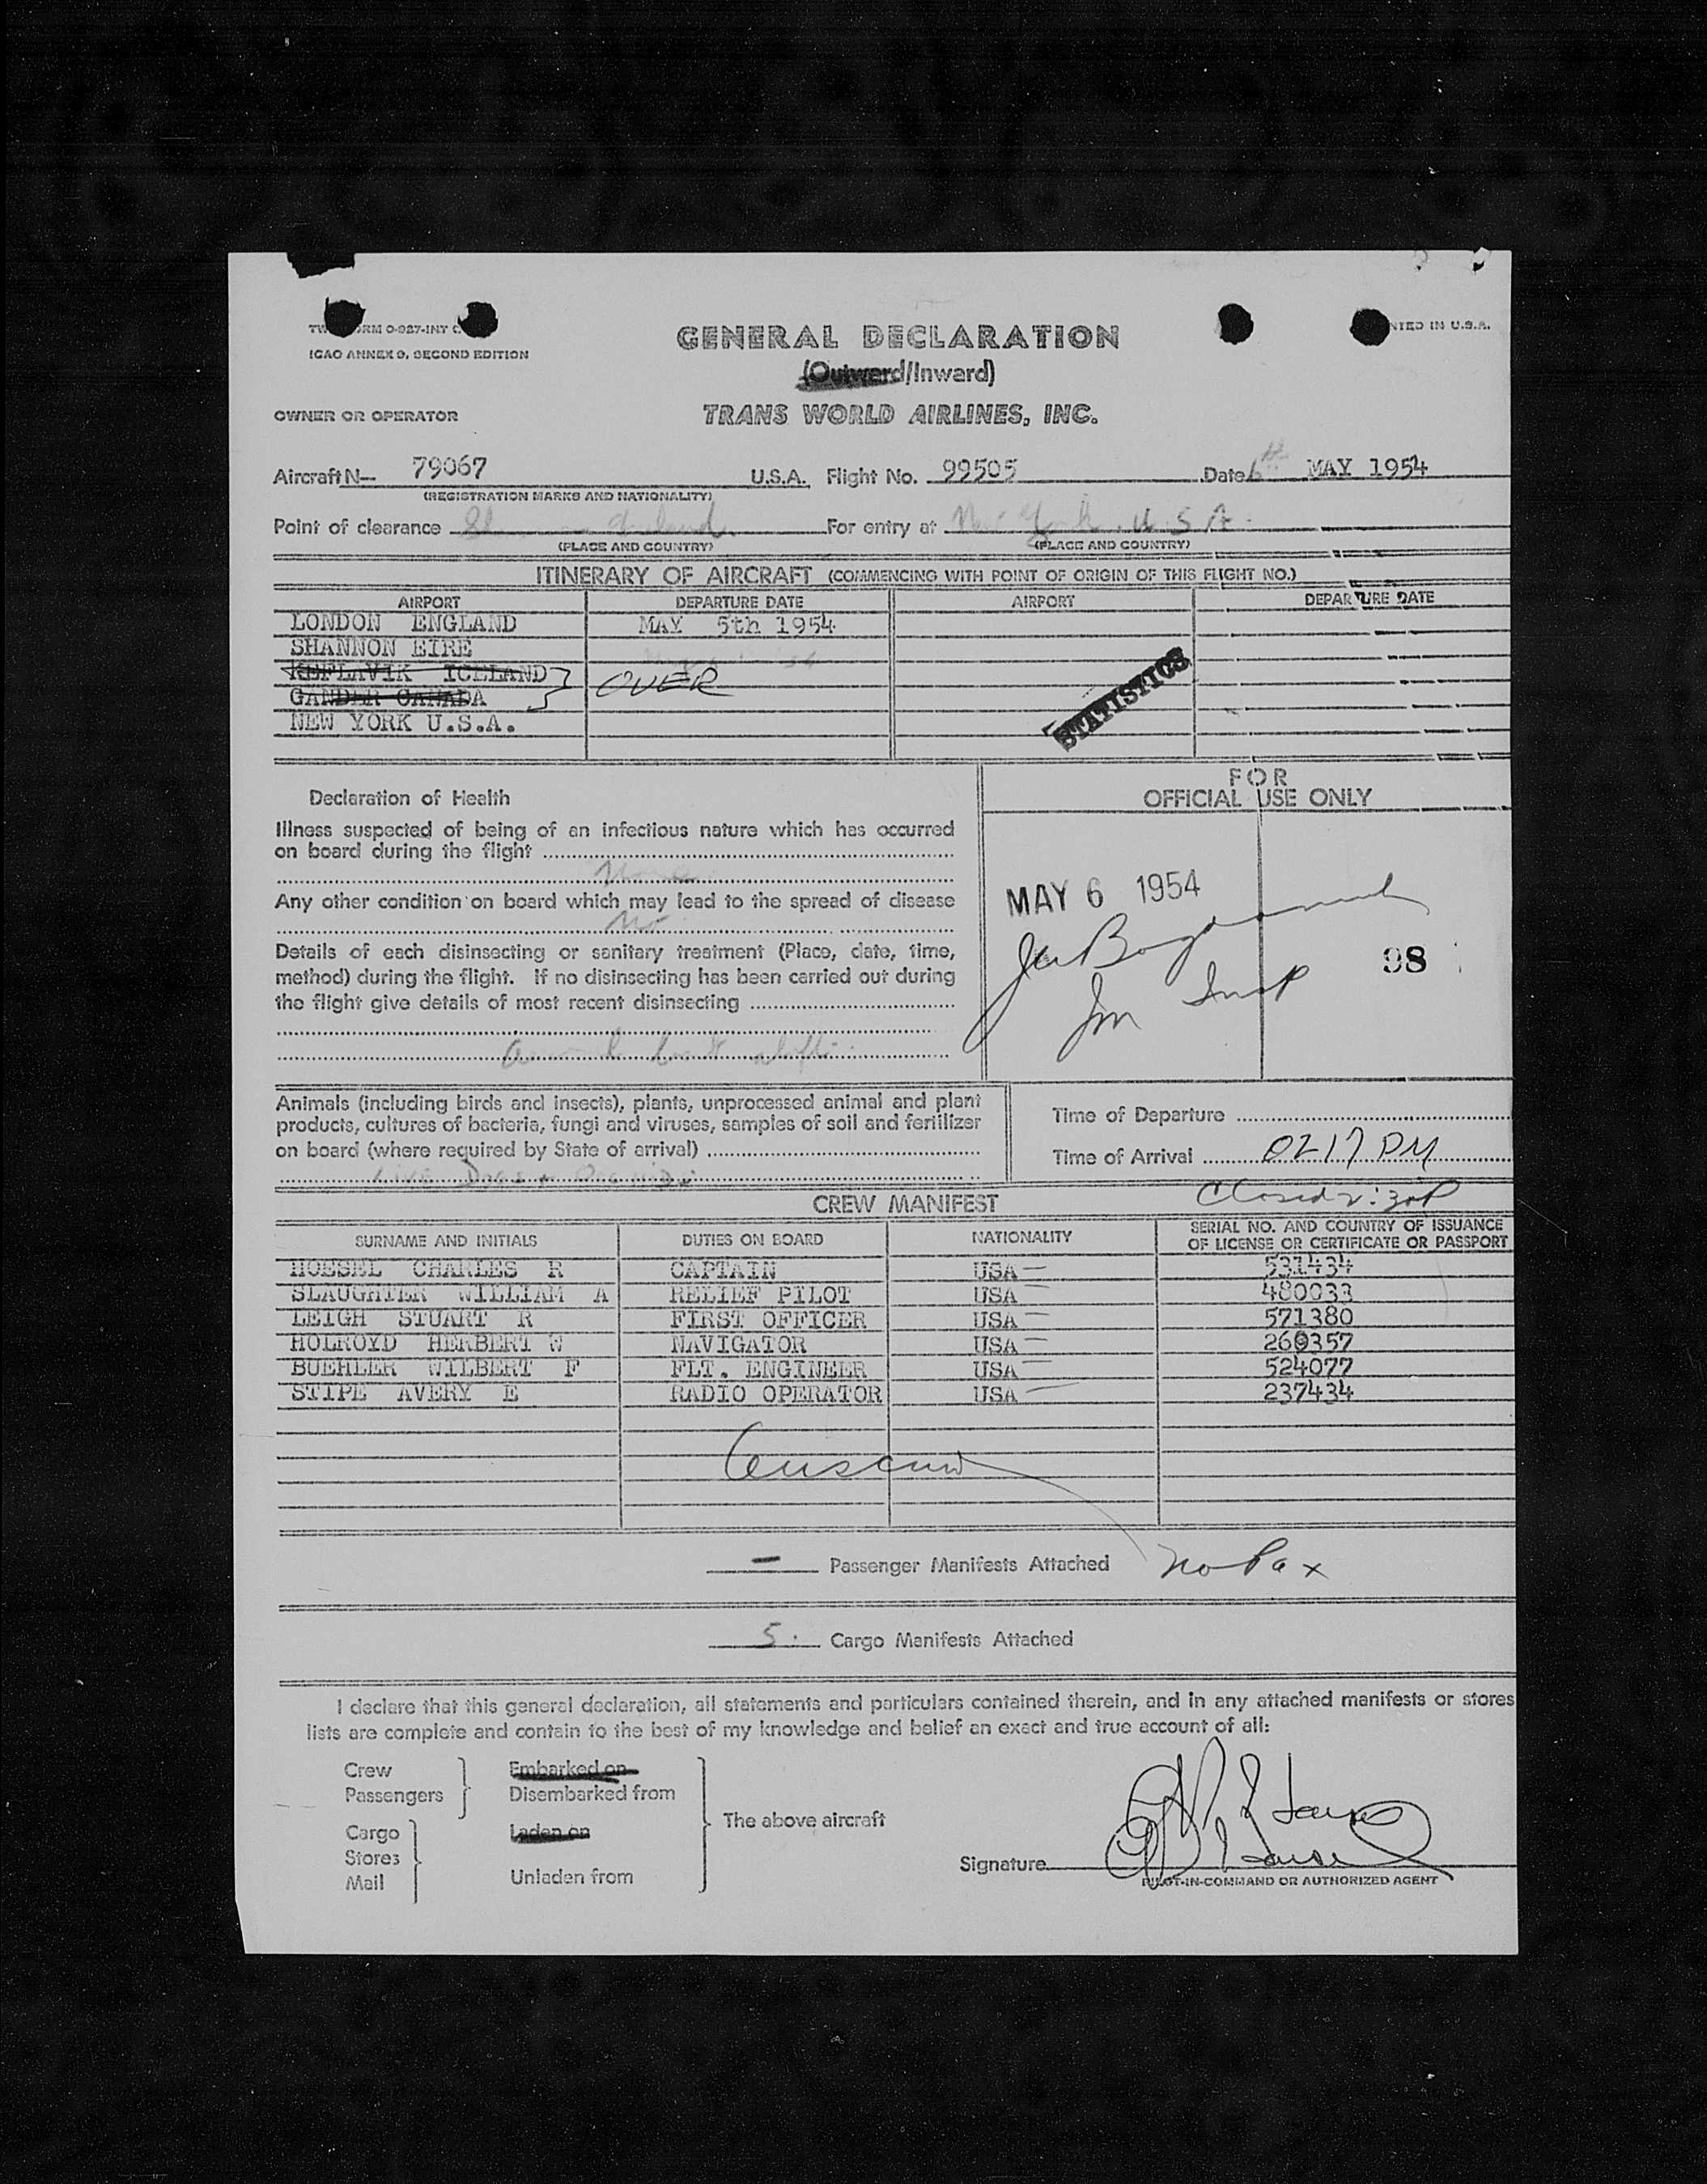 ICAO ANNEX 9, SECOND EDITION
GENERAL DECLARATION
(Outward/Inward)
OWNER OR OPERATOR TRANS WORLD AIRLINES, INC.
Aircraft N— 79067 U.S.A. Flight No. 99505 Date 6th MAY 1954
(REGISTRATION MARKS AND NATIONALITY)
Point of clearance Ireland For entry at New York, U S A.
(PLACE AND COUNTRY) (PLACE AND COUNTRY)
ITINERARY OF AIRCRAFT (COMMENCING WITH POINT OF ORIGIN OF THIS FLIGHT NO.)
AIRPORT DEPARTURE DATE AIRPORT DEPARTURE DATE
LONDON ENGLAND MAY 5th 1954
SHANNON EIRE
KEFLAVIK ICELAND
GANDER CANADA
OVER
NEW YORK U.S.A.
STATISTICS
FOR
OFFICIAL USE ONLY
Declaration of Health
Illness suspected of being of an infectious nature which has occurred
on board during the flight
None
Any other condition on board which may lead to the spread of disease
No
Details of each disinsecting or sanitary treatment (Place, date, time,
method) during the flight. If no disinsecting has been carried out during
the flight give details of most recent disinsecting
MAY 6 1954
98
Im Insp
Animals (including birds and insects), plants, unprocessed animal and plant
products, cultures of bacteria, fungi and viruses, samples of soil and fertilizer
on board (where required by State of arrival)
Time of Departure
Time of Arrival 0217 PM
CREW MANIFEST
Closed 2:30P
SURNAME AND INITIALS DUTIES ON BOARD NATIONALITY SERIAL NO. AND COUNTRY OF ISSUANCE
OF LICENSE OR CERTIFICATE OR PASSPORT
HOESEL CHARLES R CAPTAIN USA 531434
SLAUGHTER WILLIAM A RELIEF PILOT USA 480033
LEIGH STUART R FIRST OFFICER USA 571380
HOLROYD HERBERT W NAVIGATOR USA 269357
BUEHLER WILBERT F FLT. ENGINEER USA 524077
STIPE AVERY E RADIO OPERATOR USA 237434
— Passenger Manifests Attached No Pax
5. Cargo Manifests Attached
I declare that this general declaration, all statements and particulars contained therein, and in any attached manifests or stores
lists are complete and contain to the best of my knowledge and belief an exact and true account of all:
Crew Embarked on
Passengers Disembarked from
The above aircraft
Cargo Laden on
Stores
Mail Unladen from
Signature
PILOT-IN-COMMAND OR AUTHORIZED AGENT